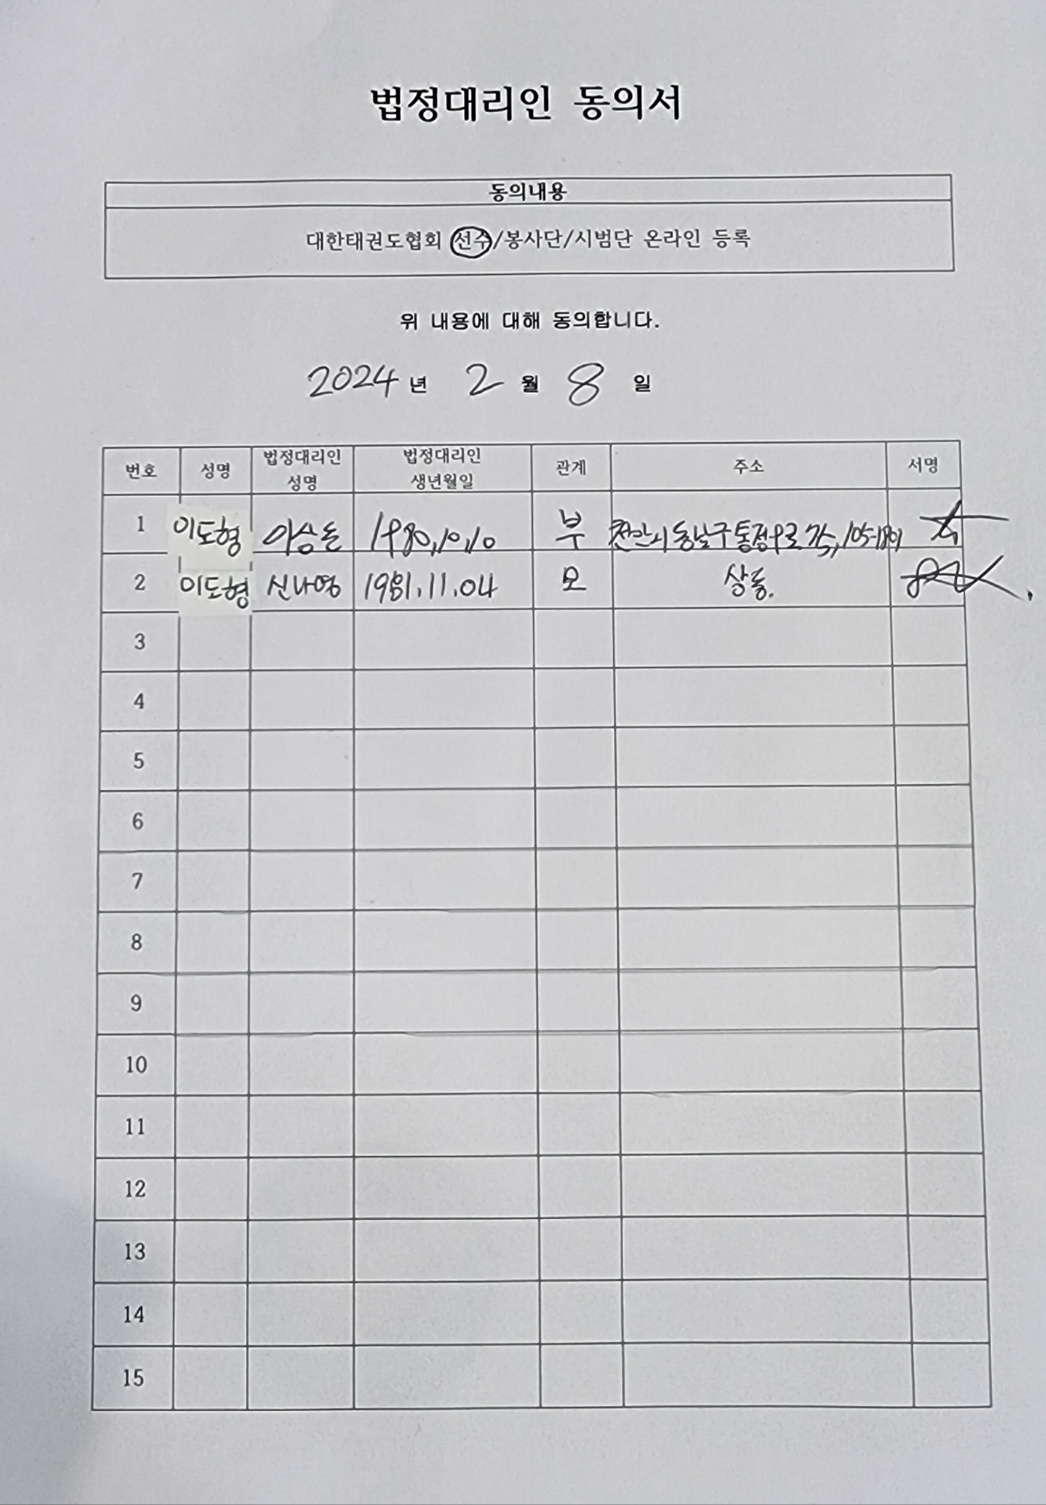 법정대리인 동의서
동의내용
대한태권도협회 선수/봉사단/시범단 온라인 등록
위 내용에 대해 동의합니다.
2024 년 2 월 8 일
번호 성명 법정대리인 성명 법정대리인 생년월일 관계 주소 서명
1 이도형 1980.10.10 부 천안시 동남구 105-1801
2 이도형 신나영 1981.11.04 모 상동.
3
4
5
6
7
8
9
10
11
12
13
14
15